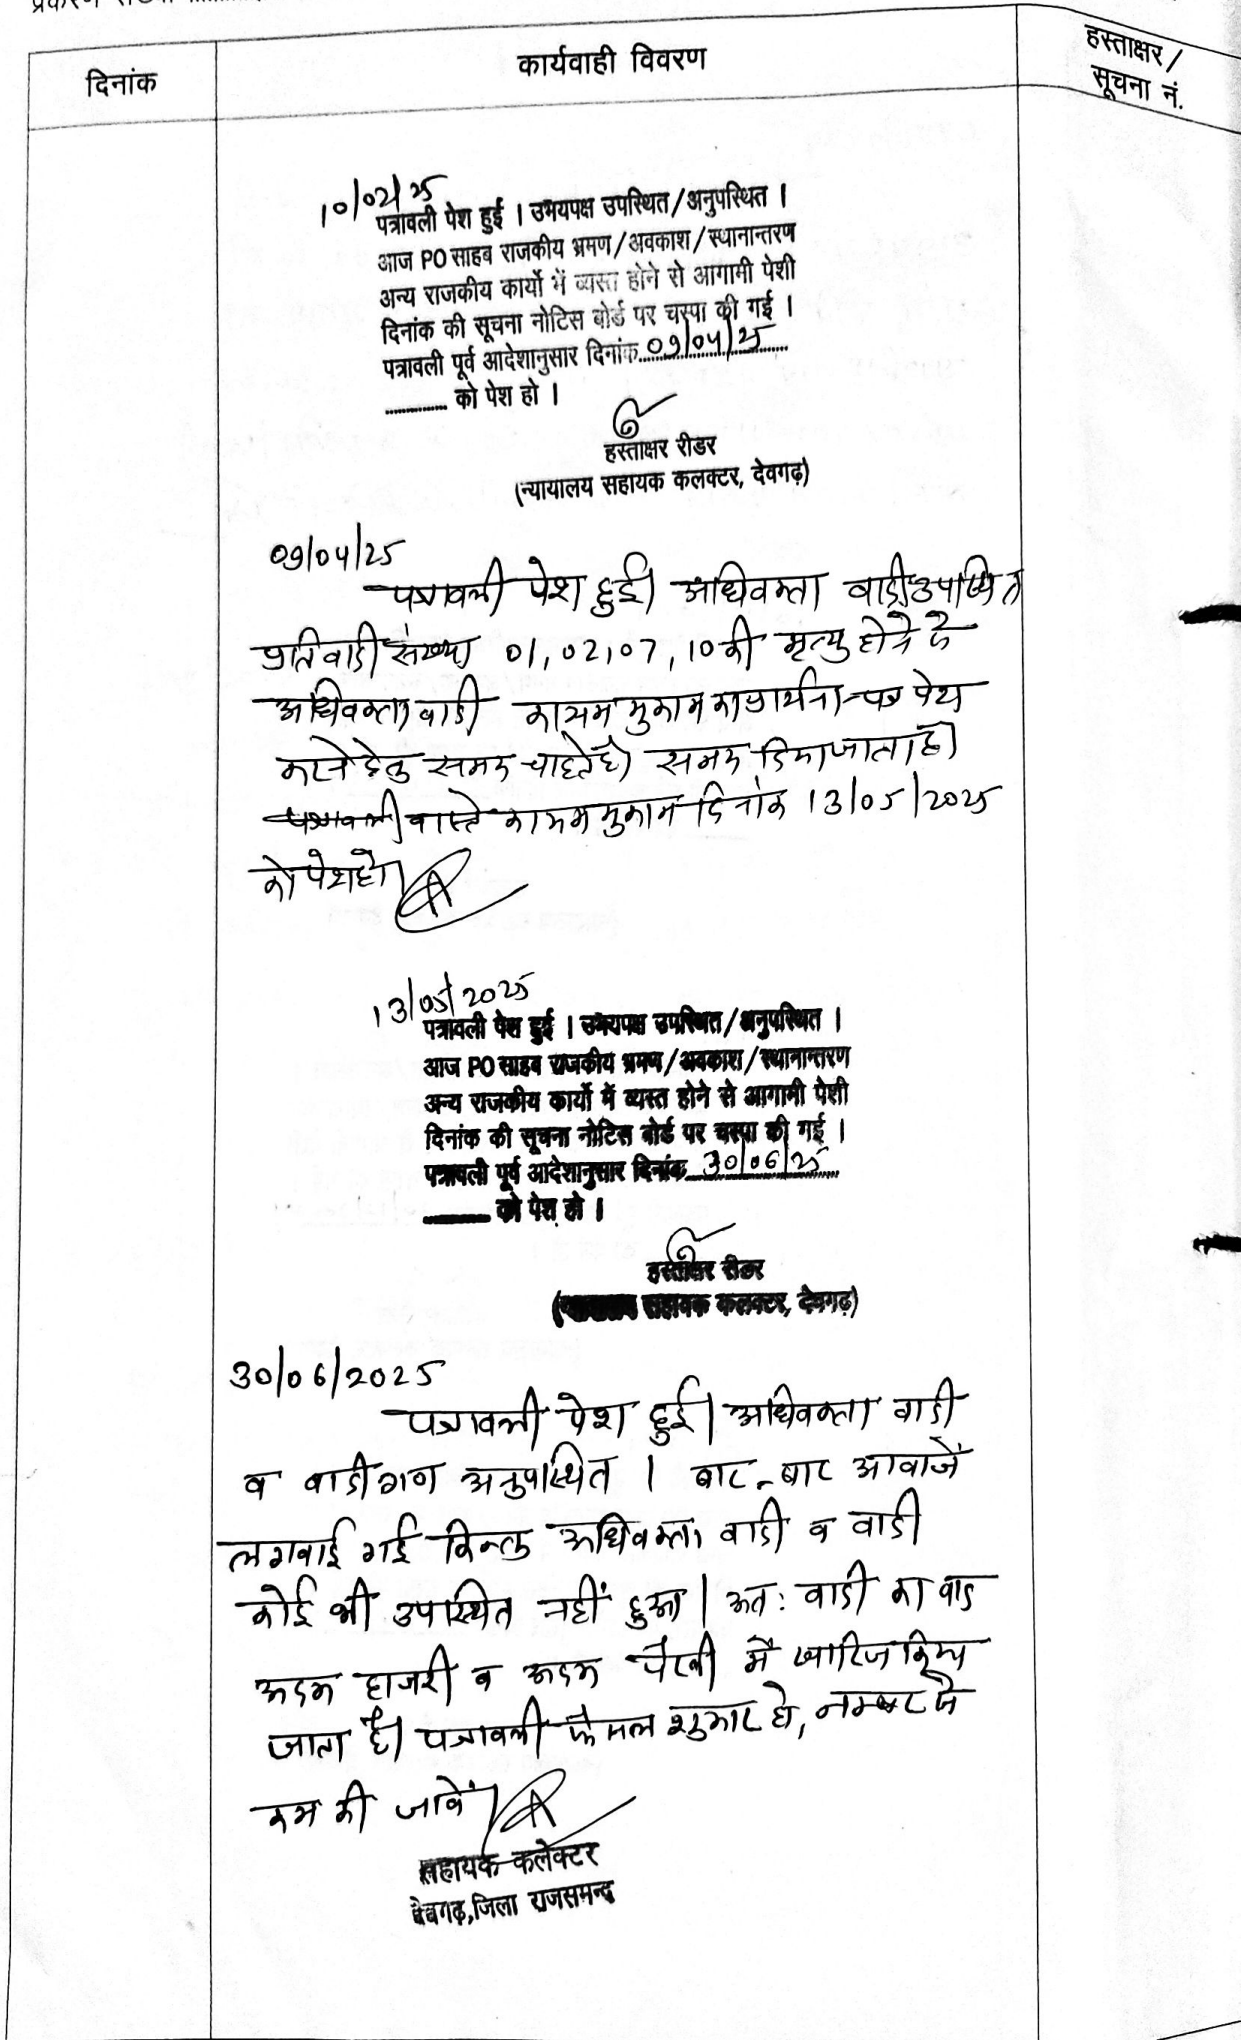 दिनांक
कार्यवाही विवरण
हस्ताक्षर/
सूचना नं.
10/02/25
पत्रावली पेश हुई । उभयपक्ष उपस्थित/अनुपस्थित ।
आज PO साहब राजकीय भ्रमण/अवकाश/स्थानान्तरण
अन्य राजकीय कार्यो में व्यस्त होने से आगामी पेशी
दिनांक की सूचना नोटिस बोर्ड पर चस्पा की गई ।
पत्रावली पूर्व आदेशानुसार दिनांक 09/04/25
को पेश हो ।
हस्ताक्षर रीडर
(न्यायालय सहायक कलक्टर, देवगढ़)
09/04/25
पत्रावली पेश हुई। अधिवक्ता वादी उपस्थित
प्रतिवादी संख्या 01,02,07,10 की मृत्यु होने से
अधिवक्ता वादी कायम मुकाम का प्रार्थना-पत्र पेश
करने हेतु समय चाहते है। समय दिया जाता है।
पत्रावली वास्ते कायम मुकाम दिनांक 13/05/2025
को पेश हो।
13/05/2025
पत्रावली पेश हुई । उभयपक्ष उपस्थित/अनुपस्थित ।
आज PO साहब राजकीय भ्रमण/अवकाश/स्थानान्तरण
अन्य राजकीय कार्यो में व्यस्त होने से आगामी पेशी
दिनांक की सूचना नोटिस बोर्ड पर चस्पा की गई ।
पत्रावली पूर्व आदेशानुसार दिनांक 30/06/25
को पेश हो ।
हस्ताक्षर रीडर
सहायक कलक्टर, देवगढ़)
30/06/2025
पत्रावली पेश हुई। अधिवक्ता वादी
व वादीगण अनुपस्थित । बार-बार आवाजें
लगवाई गई किन्तु अधिवक्ता वादी व वादी
कोई भी उपस्थित नहीं हुआ। अत: वादी का वाद
अदम हाजरी व अदम पैरवी में खारिज किया
जाता है। पत्रावली फैसल शुमार हो, नम्बर से
कम की जावें।
सहायक कलेक्टर
देवगढ़,जिला राजसमन्द